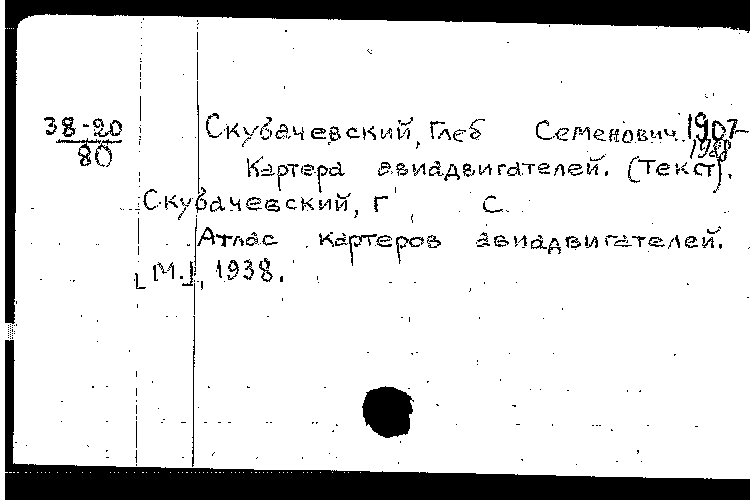 38-20
80
Скубачевский, Глеб Семенович 1907-
1988
Картера авиадвигателей. (Текст).
Скубачевский, Г. С.
Атлас картеров авиадвигателей.
[М.], 1938.